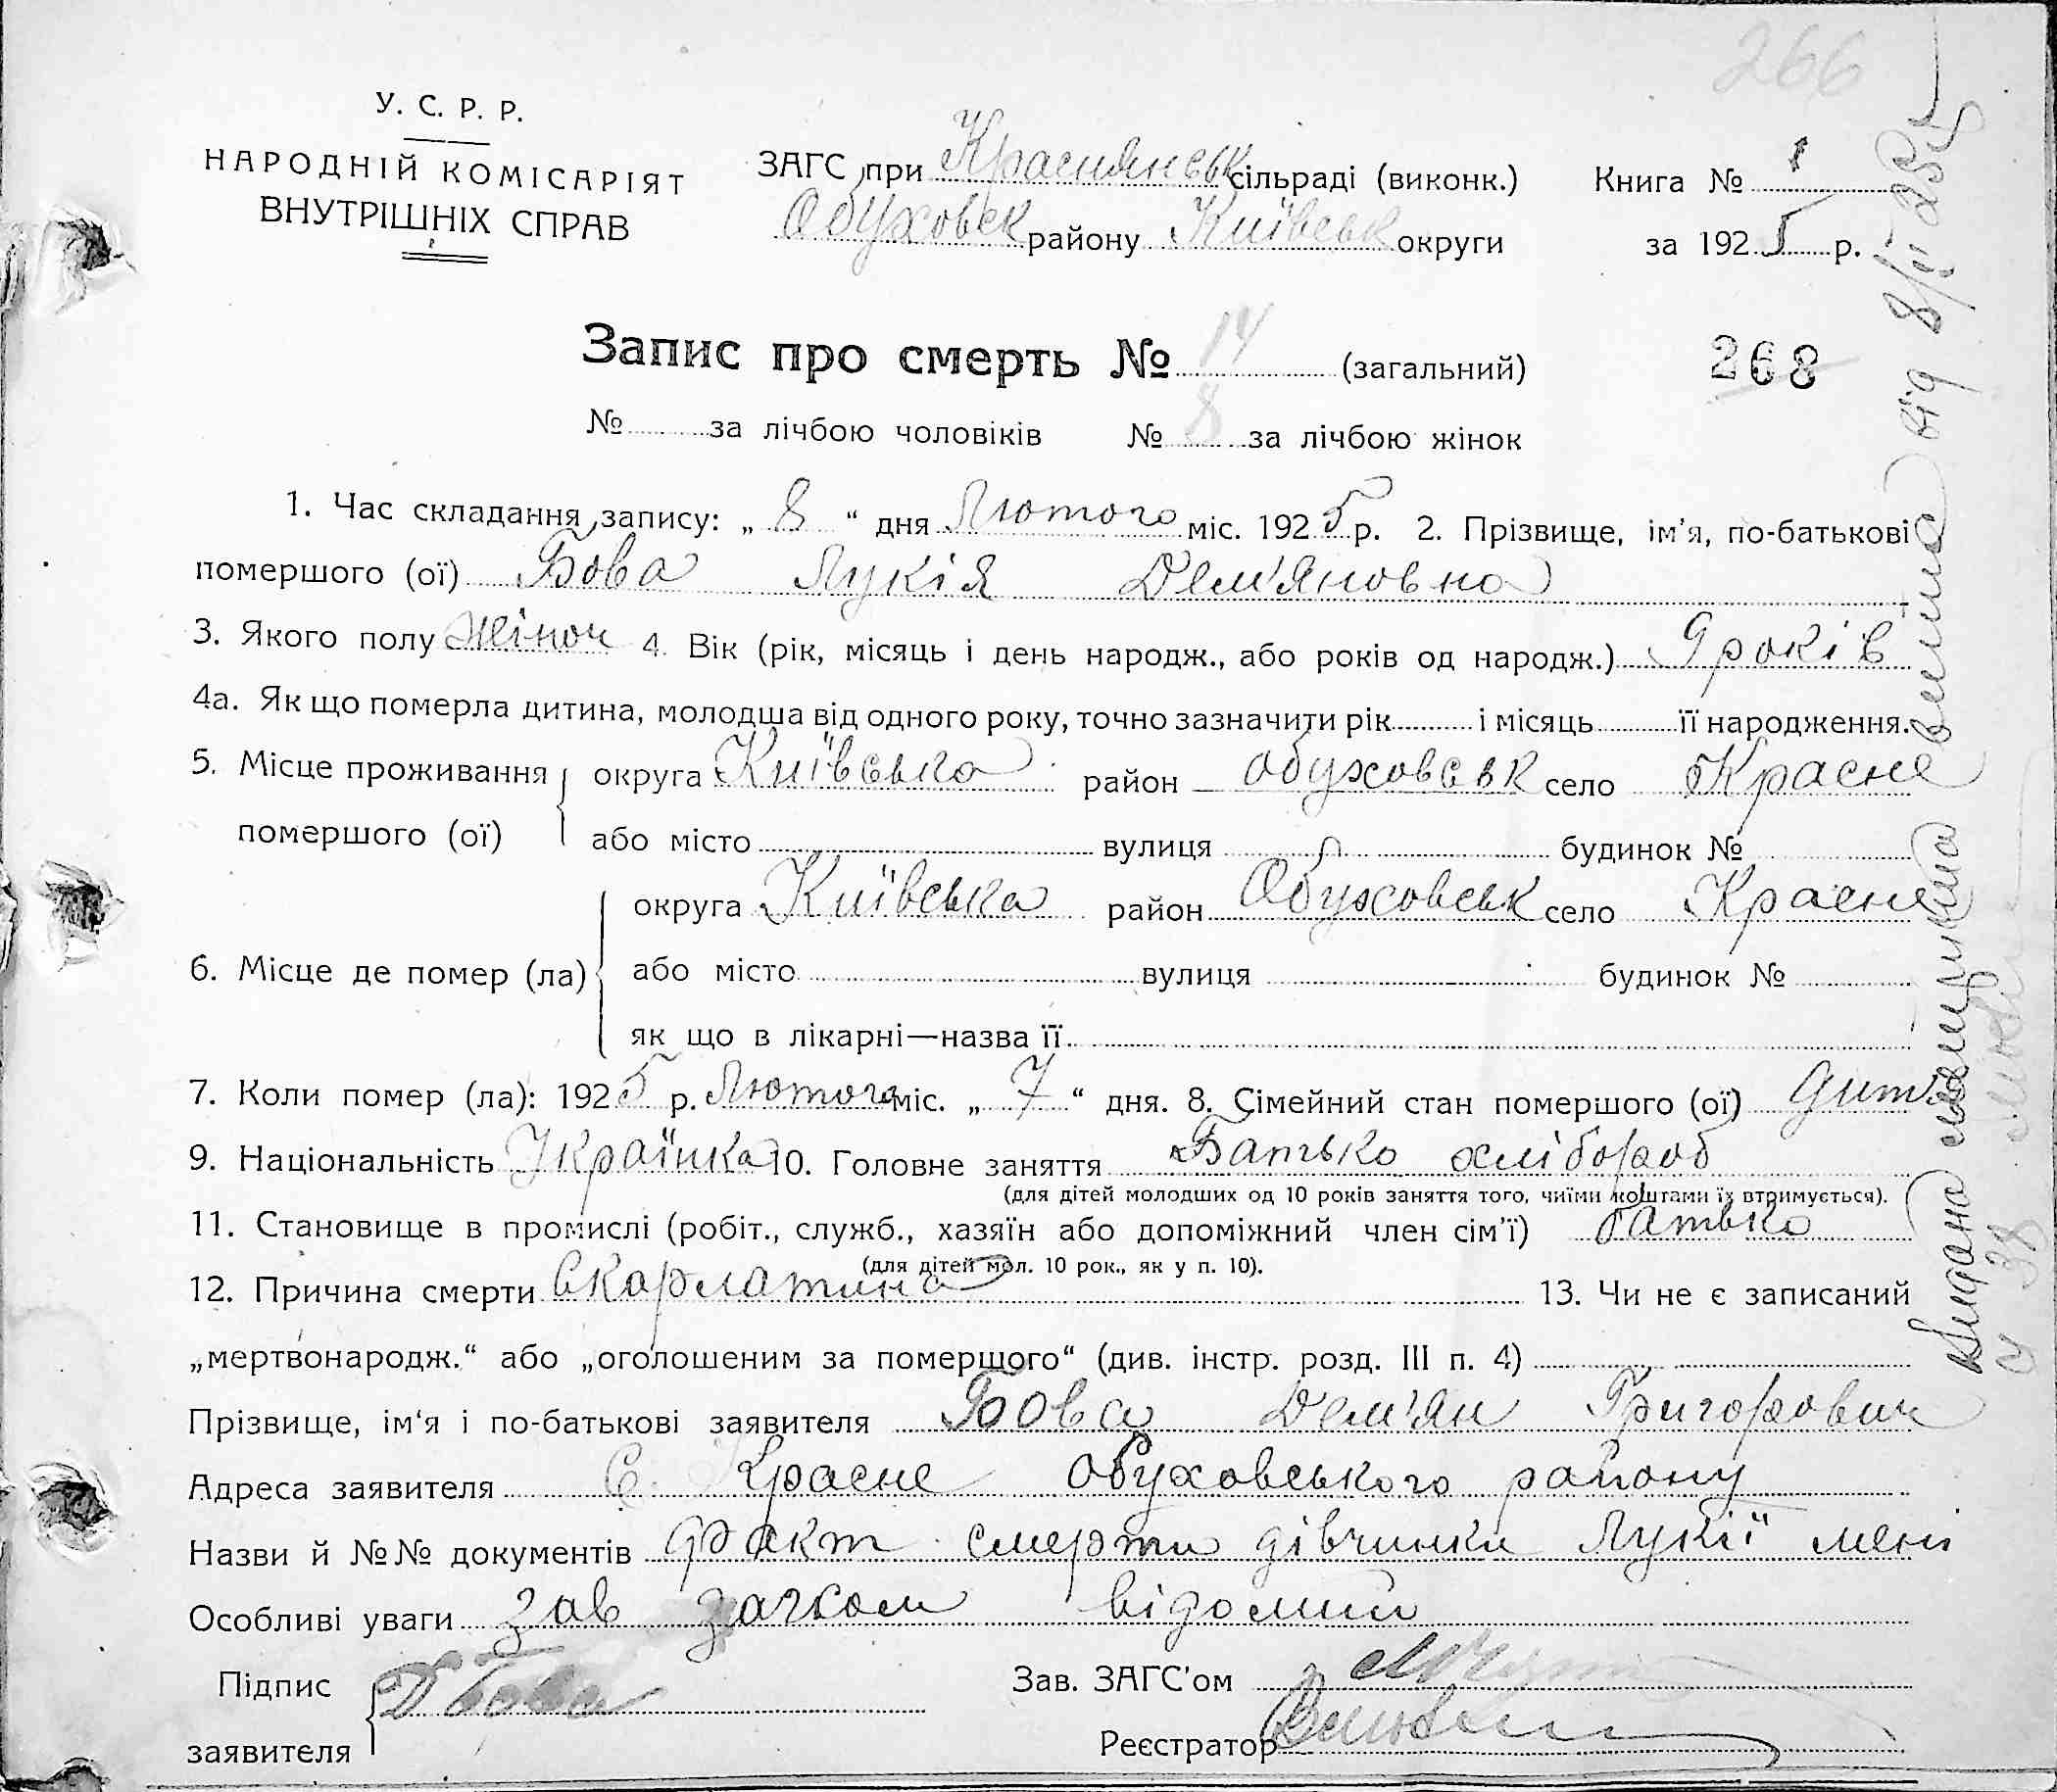 266
У. С. Р. Р.
НАРОДНІЙ КОМІСАРІЯТ
ВНУТРІШНІХ СПРАВ
ЗАГС при Краснянськ сільраді (виконк.)
Обуховськ району Київськ округи
Книга № 1
за 1925 р.
Запис про смерть № 14 (загальний)
268
№ за лічбою чоловіків № 8 за лічбою жінок
1. Час складання запису: „ 8 “ дня Лютого міс. 1925 р. 2. Прізвище, ім'я, по-батькові
помершого (ої) Бова Лукія Дем'яновна
3. Якого полу жіноч 4. Вік (рік, місяць і день народж., або років од народж.) 9 років
4а. Як що померла дитина, молодша від одного року, точно зазначити рік і місяць її народження.
5. Місце проживання помершого (ої) округа Київська район Обуховськ село Красне
або місто вулиця будинок №
6. Місце де помер (ла) округа Київська район Обуховськ село Красне
або місто вулиця будинок №
як що в лікарні—назва її
7. Коли помер (ла): 1925 р. Лютого міс. „ 7 “ дня. 8. Сімейний стан помершого (ої)
9. Національність Українка 10. Головне заняття Батько хлібороб
(для дітей молодших од 10 років заняття того, чиїми коштами їх втримується).
11. Становище в промислі (робіт., служб., хазяїн або допоміжний член сім'ї) батько
(для дітей мол. 10 рок., як у п. 10).
12. Причина смерти Скарлатина 13. Чи не є записаний
„мертвонародж.“ або „оголошеним за помершого“ (див. інстр. розд. III п. 4)
Прізвище, ім'я і по-батькові заявителя Бова Дем'ян Григорович
Адреса заявителя С. Красне Обуховського району
Назви й №№ документів факт смерти дівчинки Лукії мені
Особливі уваги зав загсом відомий
Підпис заявителя Д Бова
Зав. ЗАГС'ом
Реєстратор
видана виписка від 8/II 25 р